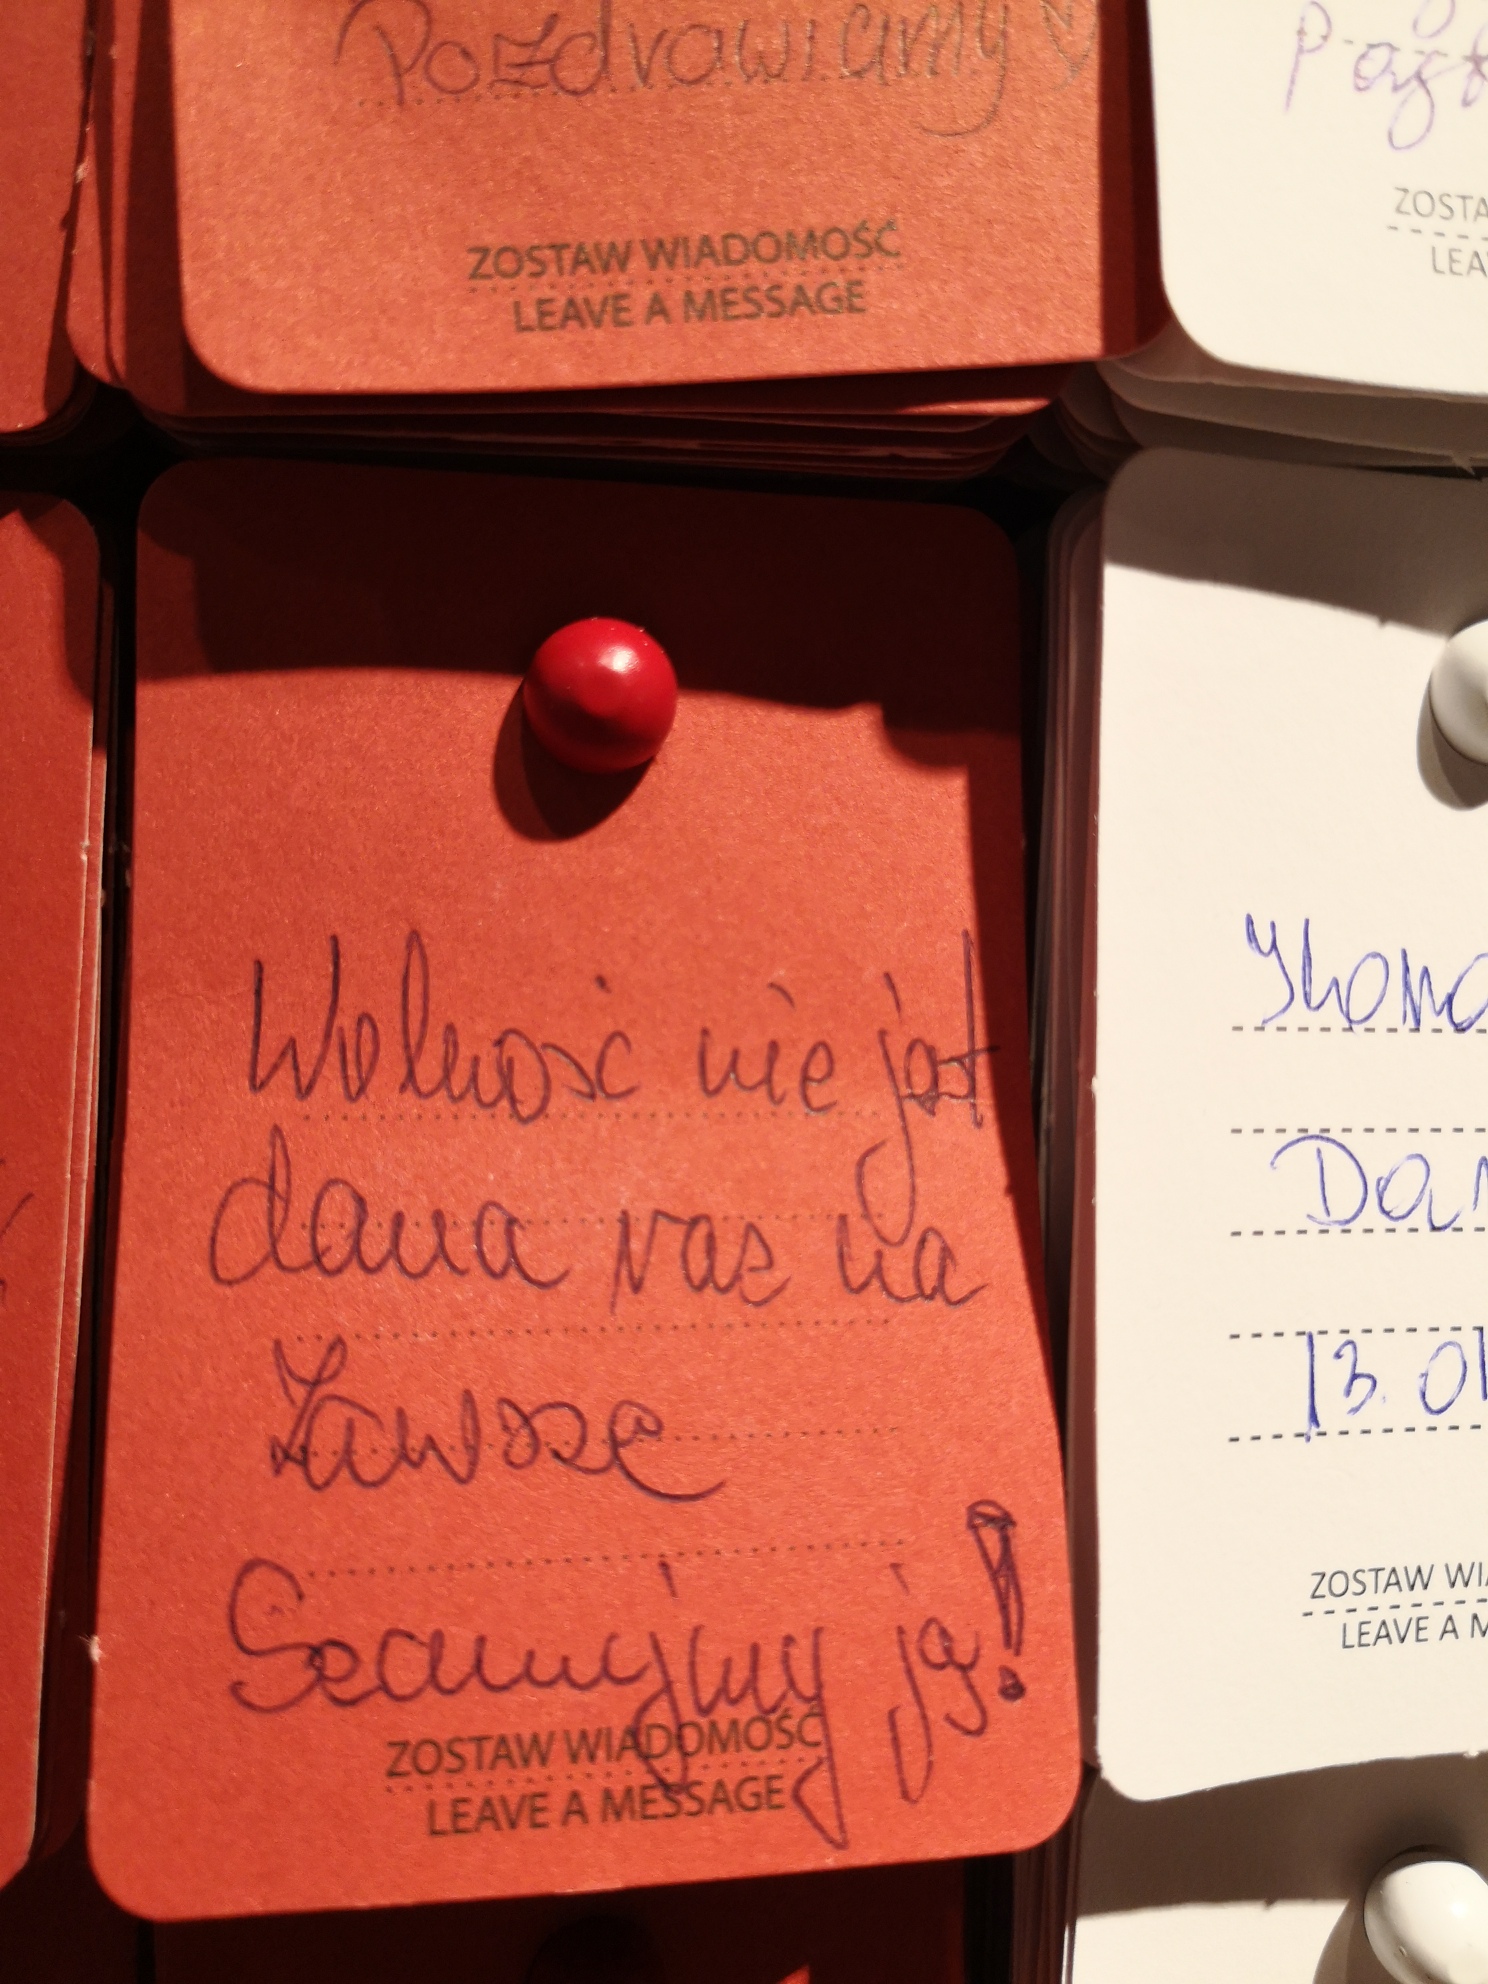 Pozdrawiamy ♡
ZOSTAW WIADOMOŚĆ
LEAVE A MESSAGE
ZOSTA
LEA
Wolność nie jest
dana raz na
Zawsze
Szanujmy ją!
ZOSTAW WIADOMOŚĆ
LEAVE A MESSAGE
13.01
ZOSTAW WIA
LEAVE A M